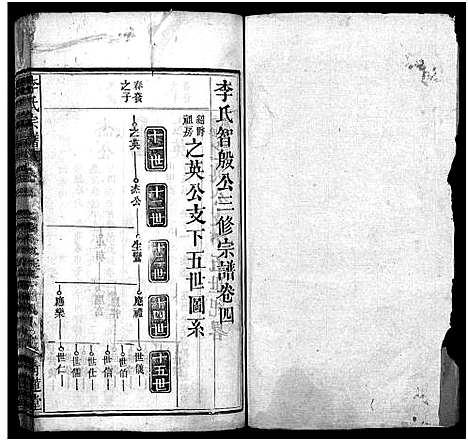 李氏智殷公三修宗譜卷四
之英公支下五世圖系
十一世
十二世
十三世
十四世
十五世
之子
之英
杰公
生璽
應禮
世儀
世伯
世仕
世信
應樂
世儒
世仁
李氏宗譜